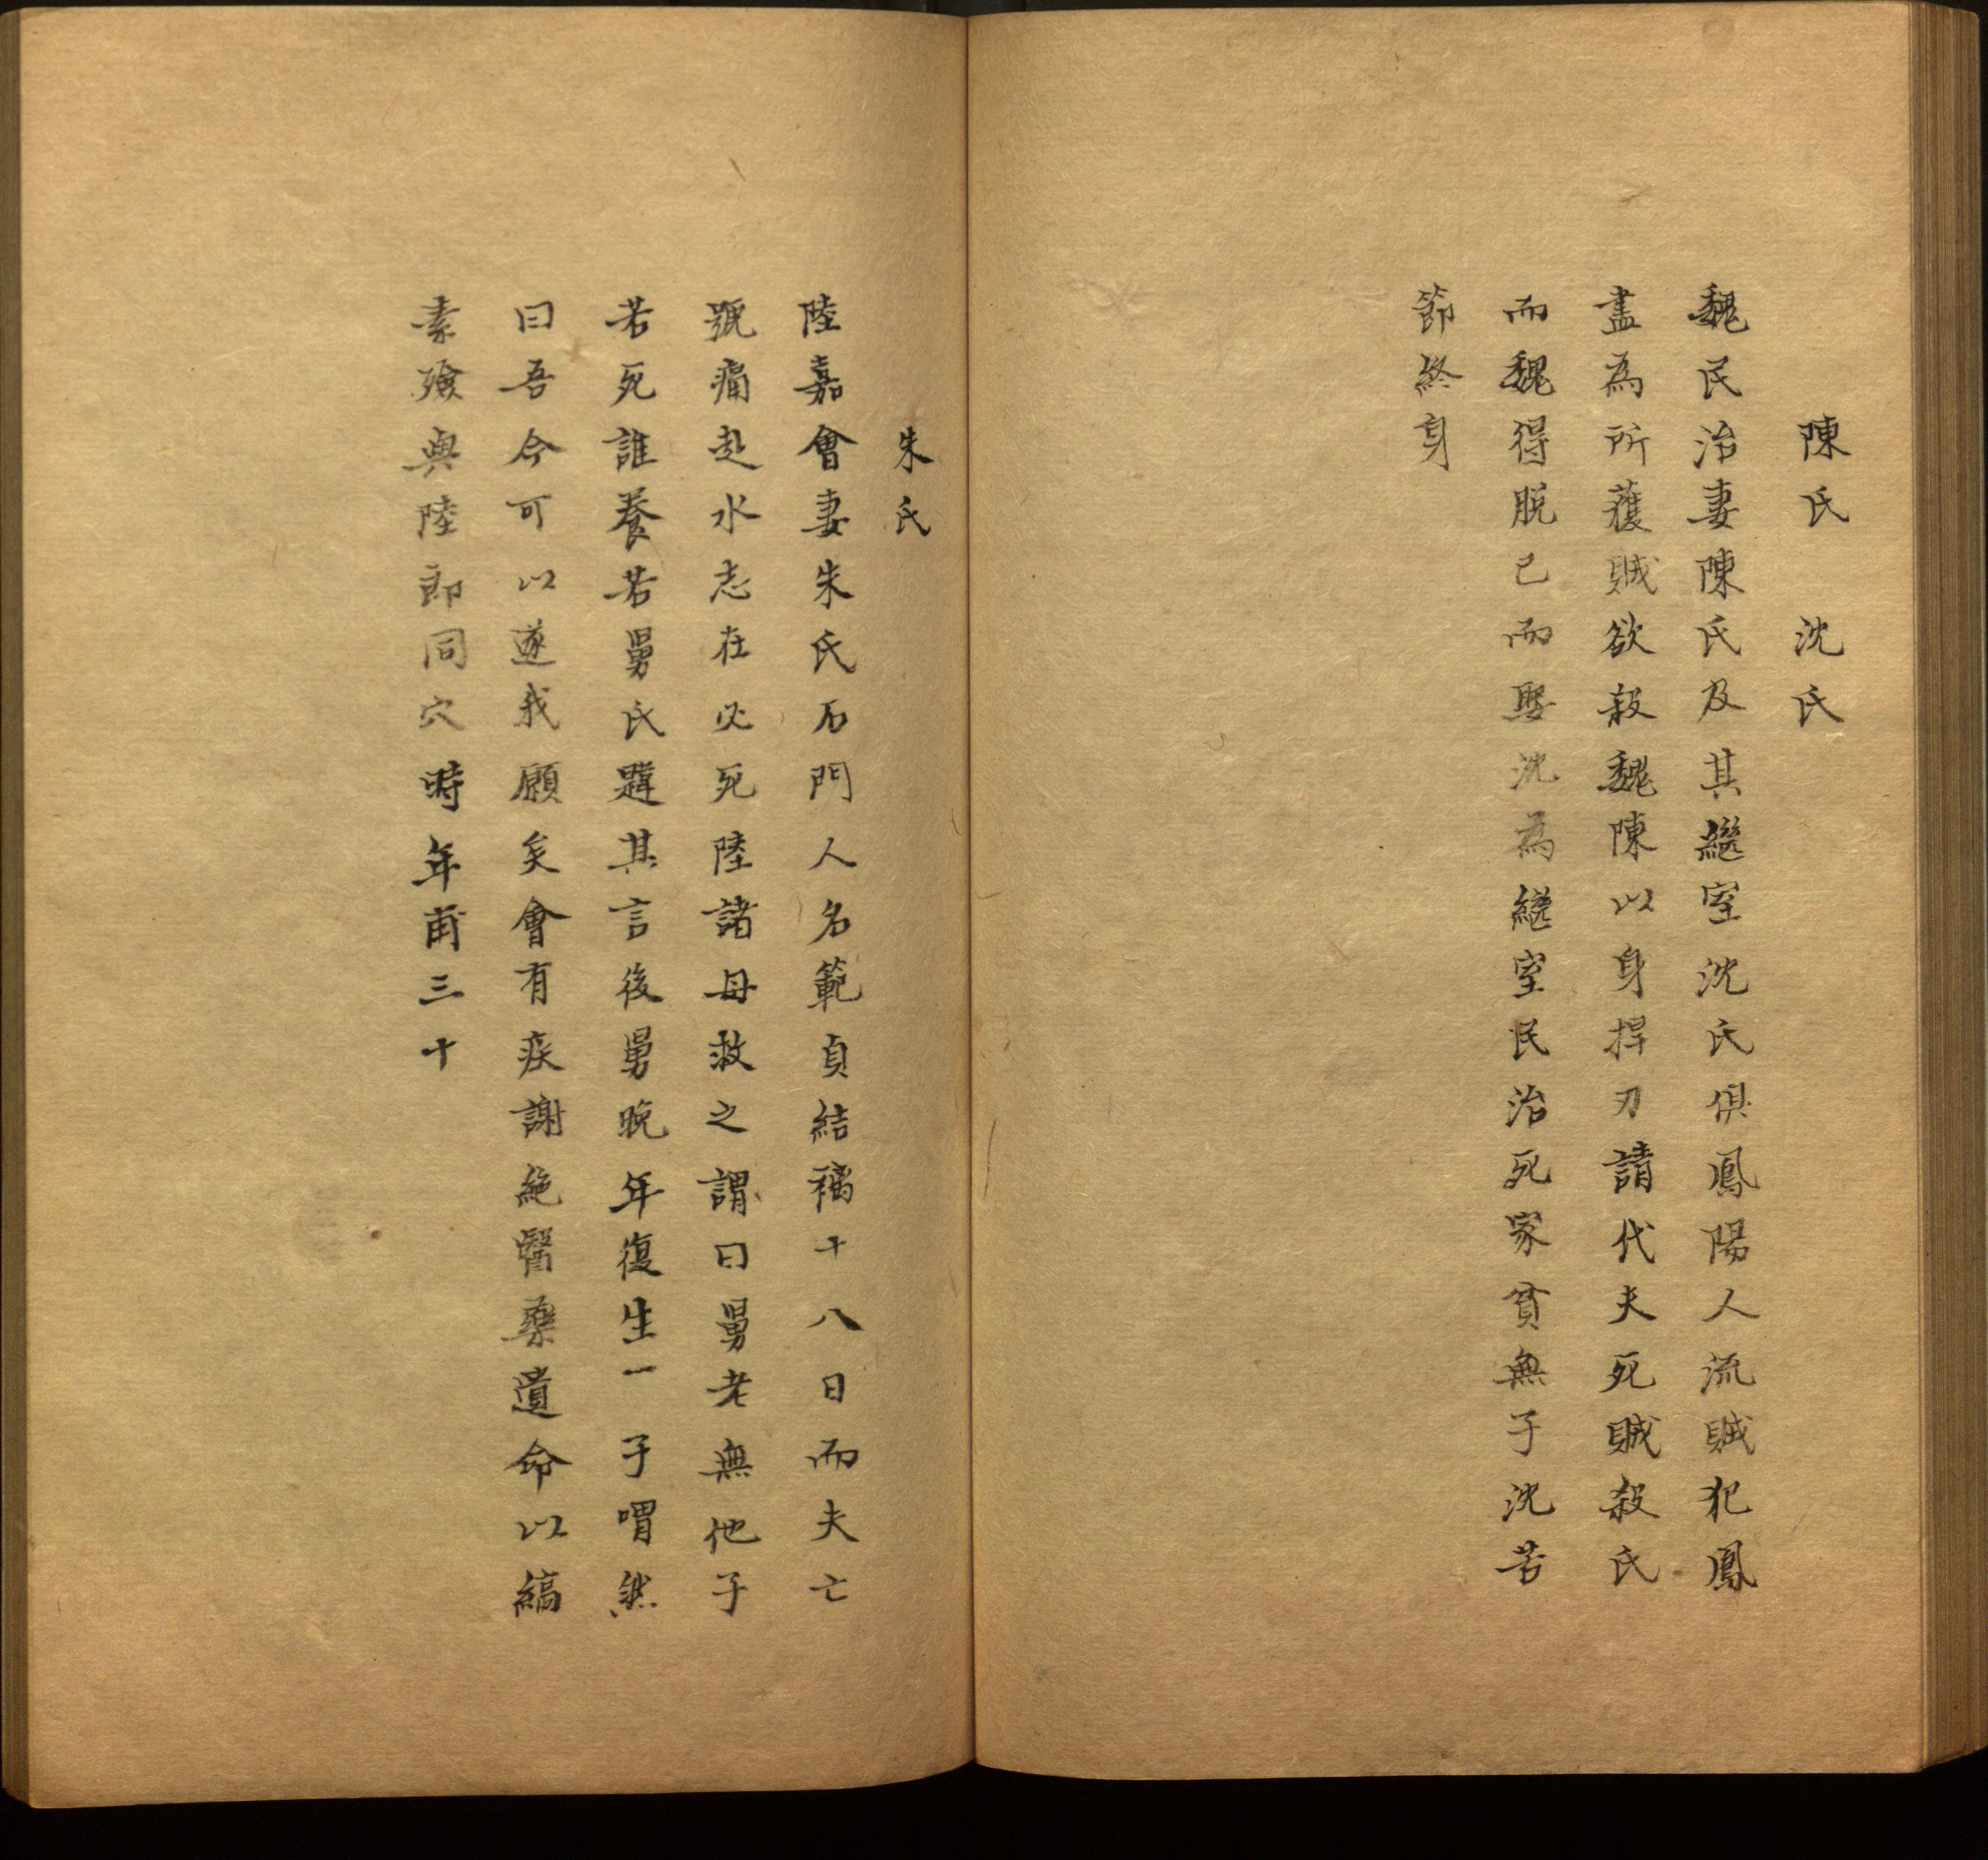 陳氏　沈氏
魏民治妻陳氏及其繼室沈氏俱鳳陽人流賊犯鳳
盡為所獲賊欲殺魏陳以身捍刃請代夫死賊殺氏
而魏得脱已而娶沈為繼室民治死家貧無子沈苦
節終身
朱氏
陸嘉會妻朱氏石門人名範貞結褵十八日而夫亡
號痛赴水志在必死陸諸母救之謂曰舅老無他子
若死誰養若舅氏韙其言後舅晩年復生一子喟然
曰吾今可以遂我願矣會有疾謝絶醫藥遺命以縞
素殮與陸郎同穴時年甫三十